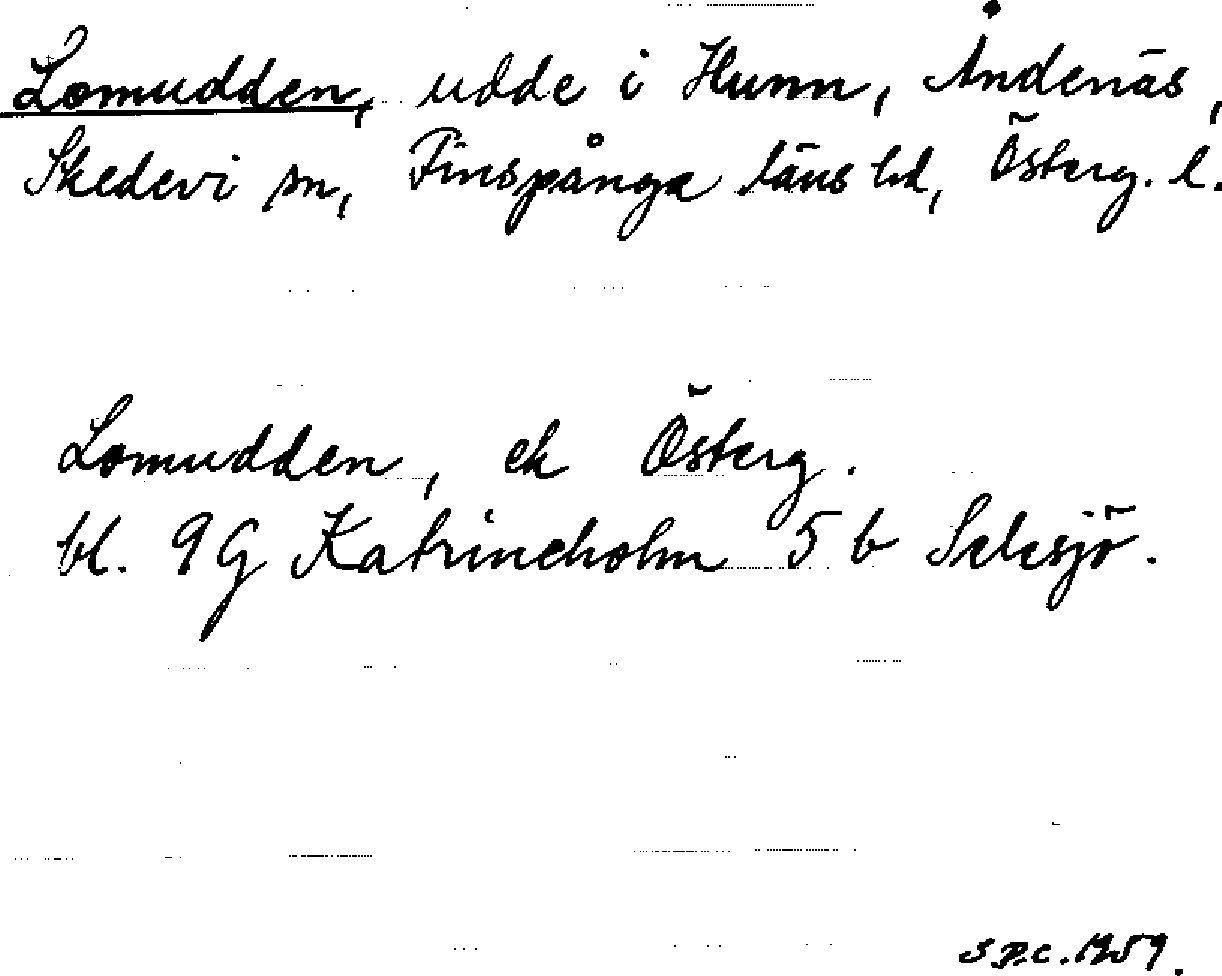 Lomudden, udde i Hunn, Åndenäs,
Skedevi sn, Finspånga läns hd, Österg. l.
Lomudden, ek Österg.
bl. 9G Katrineholm 5 b Selesjö.
1959.